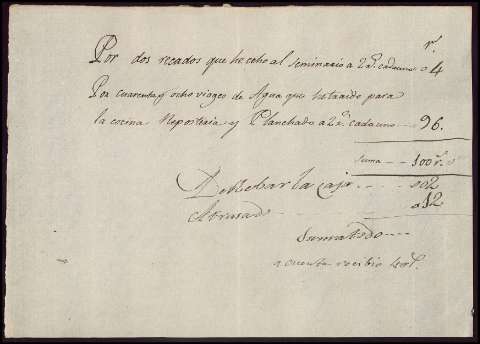 rˢ.
Por dos recados que he echo al Seminario a 2 rˢ. cada uno 04
Por cuarenta y ocho viages de Agua que he traido para
la cocina Reposteria y Planchado a 2 rˢ. cada uno 96.
Suma 100 rˢ.
De llebar la caja 002
Atrasado 012
Suma todo
a cuenta recibio